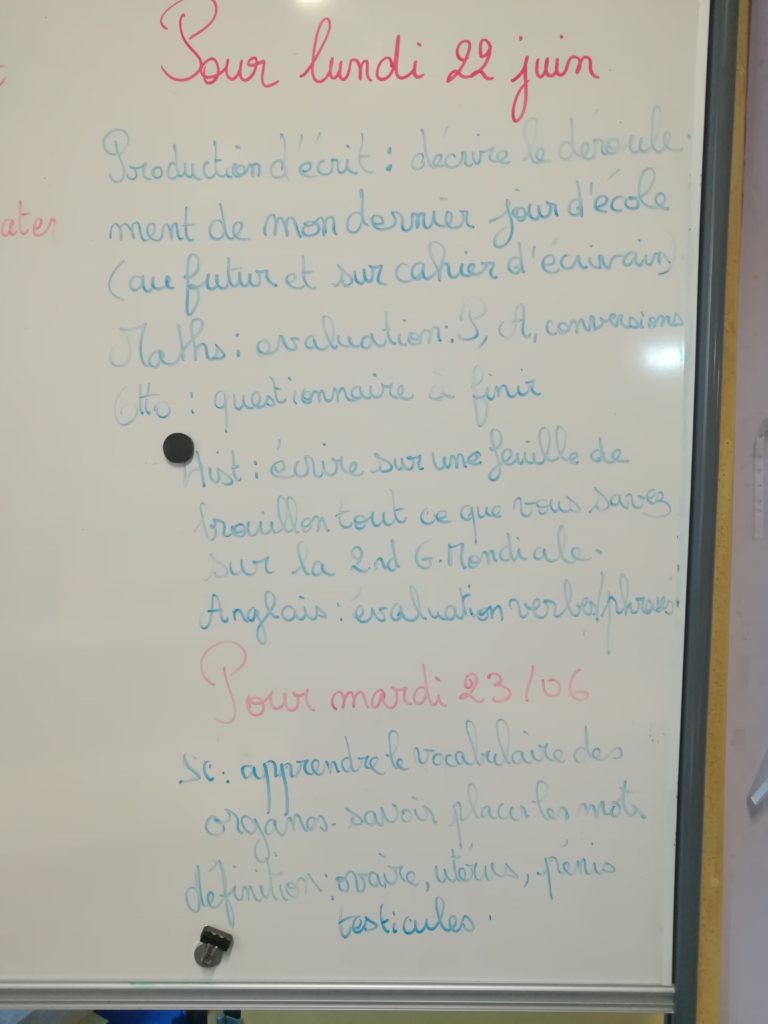 Pour lundi 22 juin
Production d'écrit : décrire le déroule
ment de mon dernier jour d'école
(au futur et sur cahier d'écrivain)
Maths : evaluation : P, A, conversions
Otto : questionnaire à finir
Hist : écrire sur une feuille de
brouillon tout ce que vous savez
sur la 2nd G. Mondiale.
Anglais : évaluation verbes/phrases.
Pour mardi 23/06
Sc : apprendre le vocabulaire des
organes. savoir placer les mots
définition : ovaire, utérus, pénis
testicules.